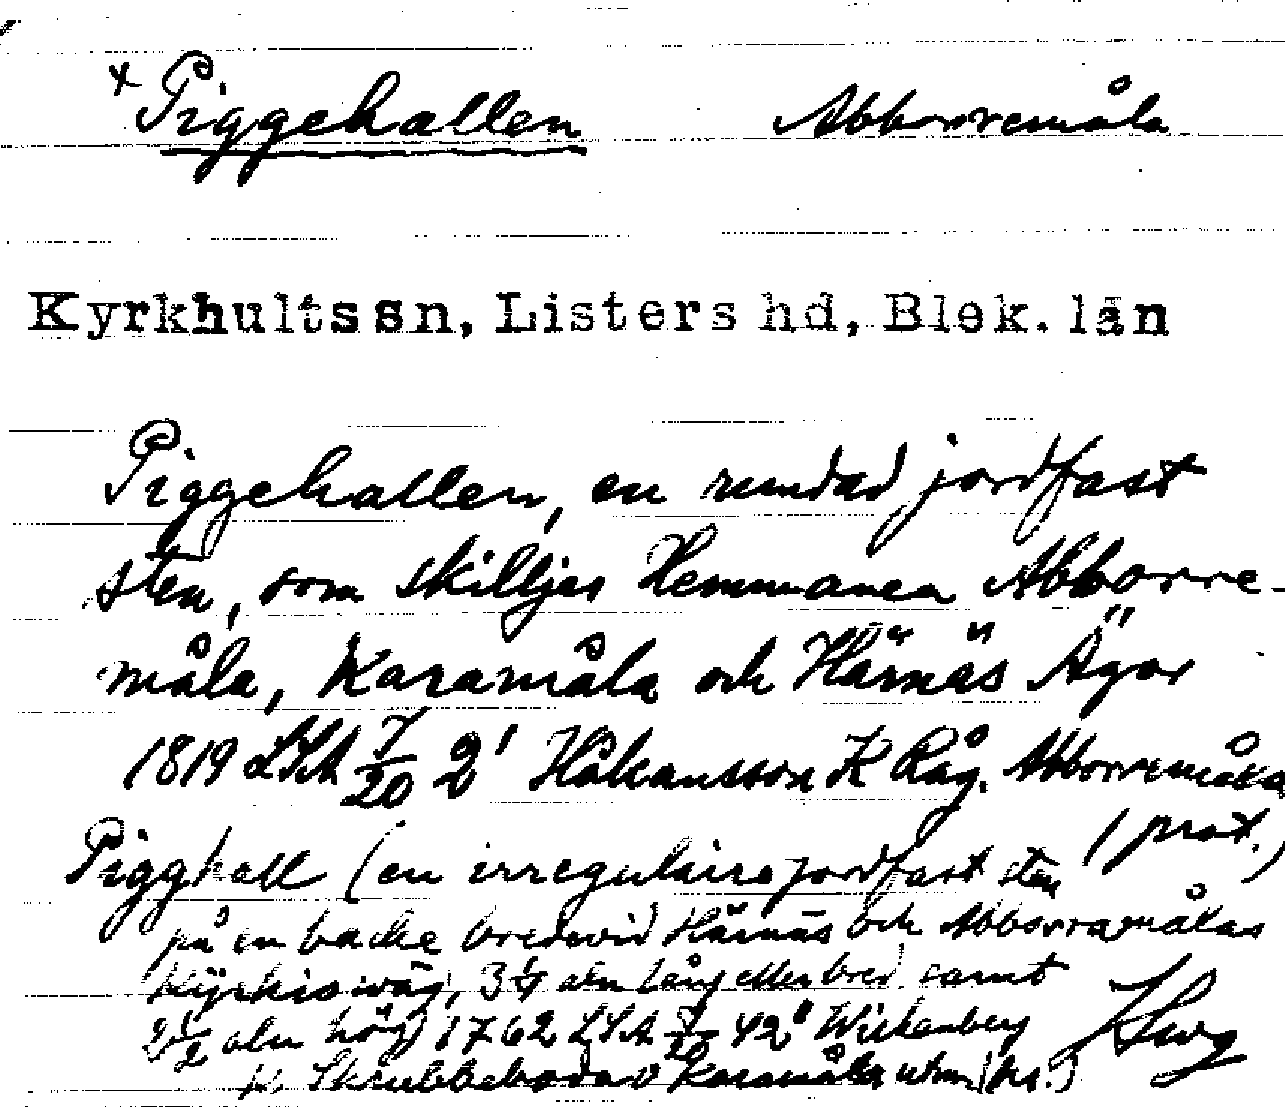 x Piggehallen Abborremåla
Kyrkhultssn, Listers hd, Blek. län
Piggehallen, en rundad jordfast
sten, som skilljer Hemmanen Abborre-
måla, Karamåla och Härnäs Ägor
1819 LSA 7/20 2' Håkansson K Råg. Abborremåla
(prot.)
Pigghall (en irregulaire jordfast sten
på en backe bredevid Härnäs och Abborramålas
Kyrkiowäg, 3 1/4 aln lång eller bred samt
2 1/2 aln hög) 1762 LSA 7/20 42" Wickenberg
K. Skrubbeboda o Karamåla utm (hr.)